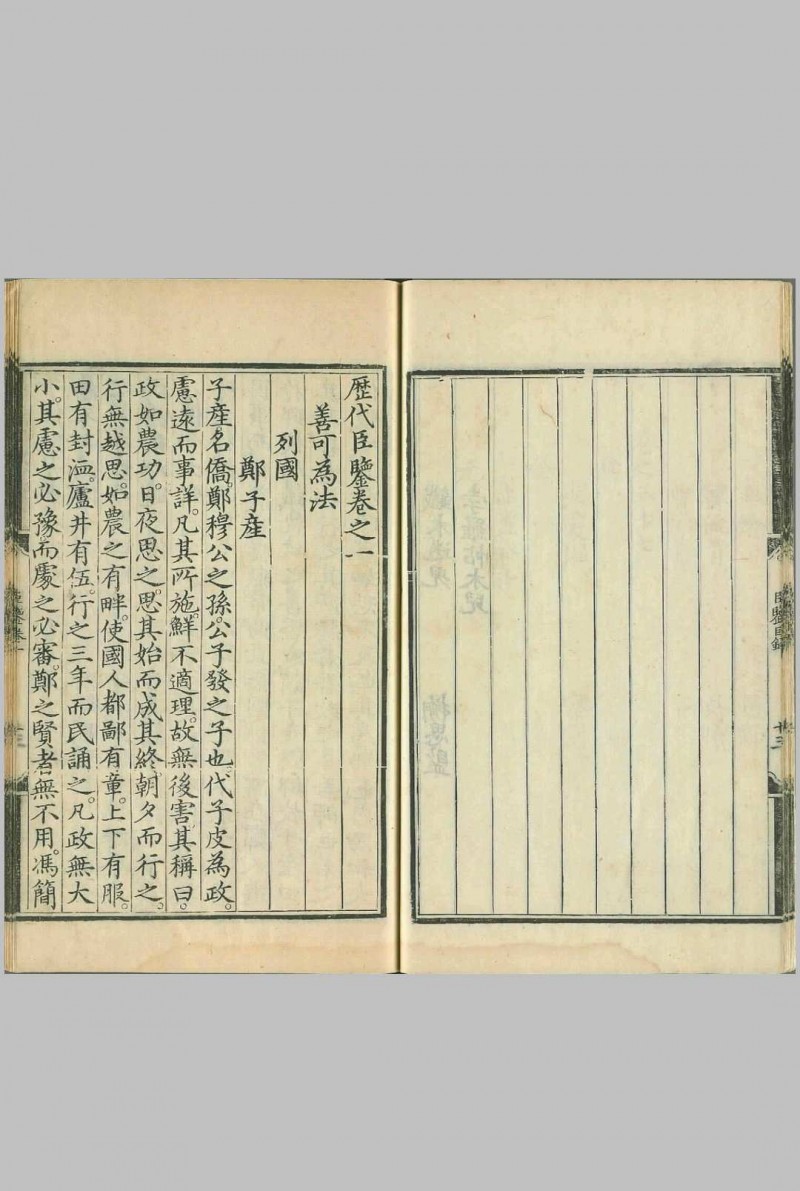 臣鑒目錄
歷代臣鑒卷之一
善可為法
列國
鄭子產
子產名僑。鄭穆公之孫。公子發之子也。代子皮為政。
慮遠而事詳。凡其所施。鮮不適理。故無後害。其稱曰。
政如農功。日夜思之。思其始而成其終。朝夕而行之。
行無越思。如農之有畔。使國人都鄙有章。上下有服。
田有封洫。廬井有伍。行之三年而民誦之。凡政無大
小。其慮之必豫。而處之必審。鄭之賢者無不用。馮簡